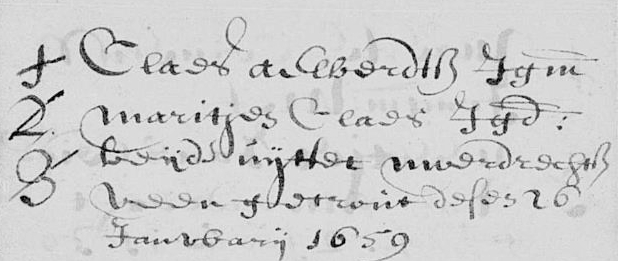 Claes aelberdtß Jgm
2. maritjes Claes Jgd:
3 beijde uijttet mverdrechtß
veen getrout desen 26
Januvarij 1659